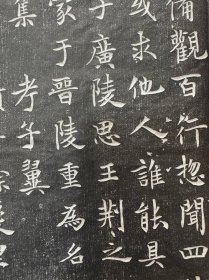 備觀百行惣聞四
或求他人誰能具
子廣陵思王荆之
家于晉陵重為名
集 孝子翼
宗